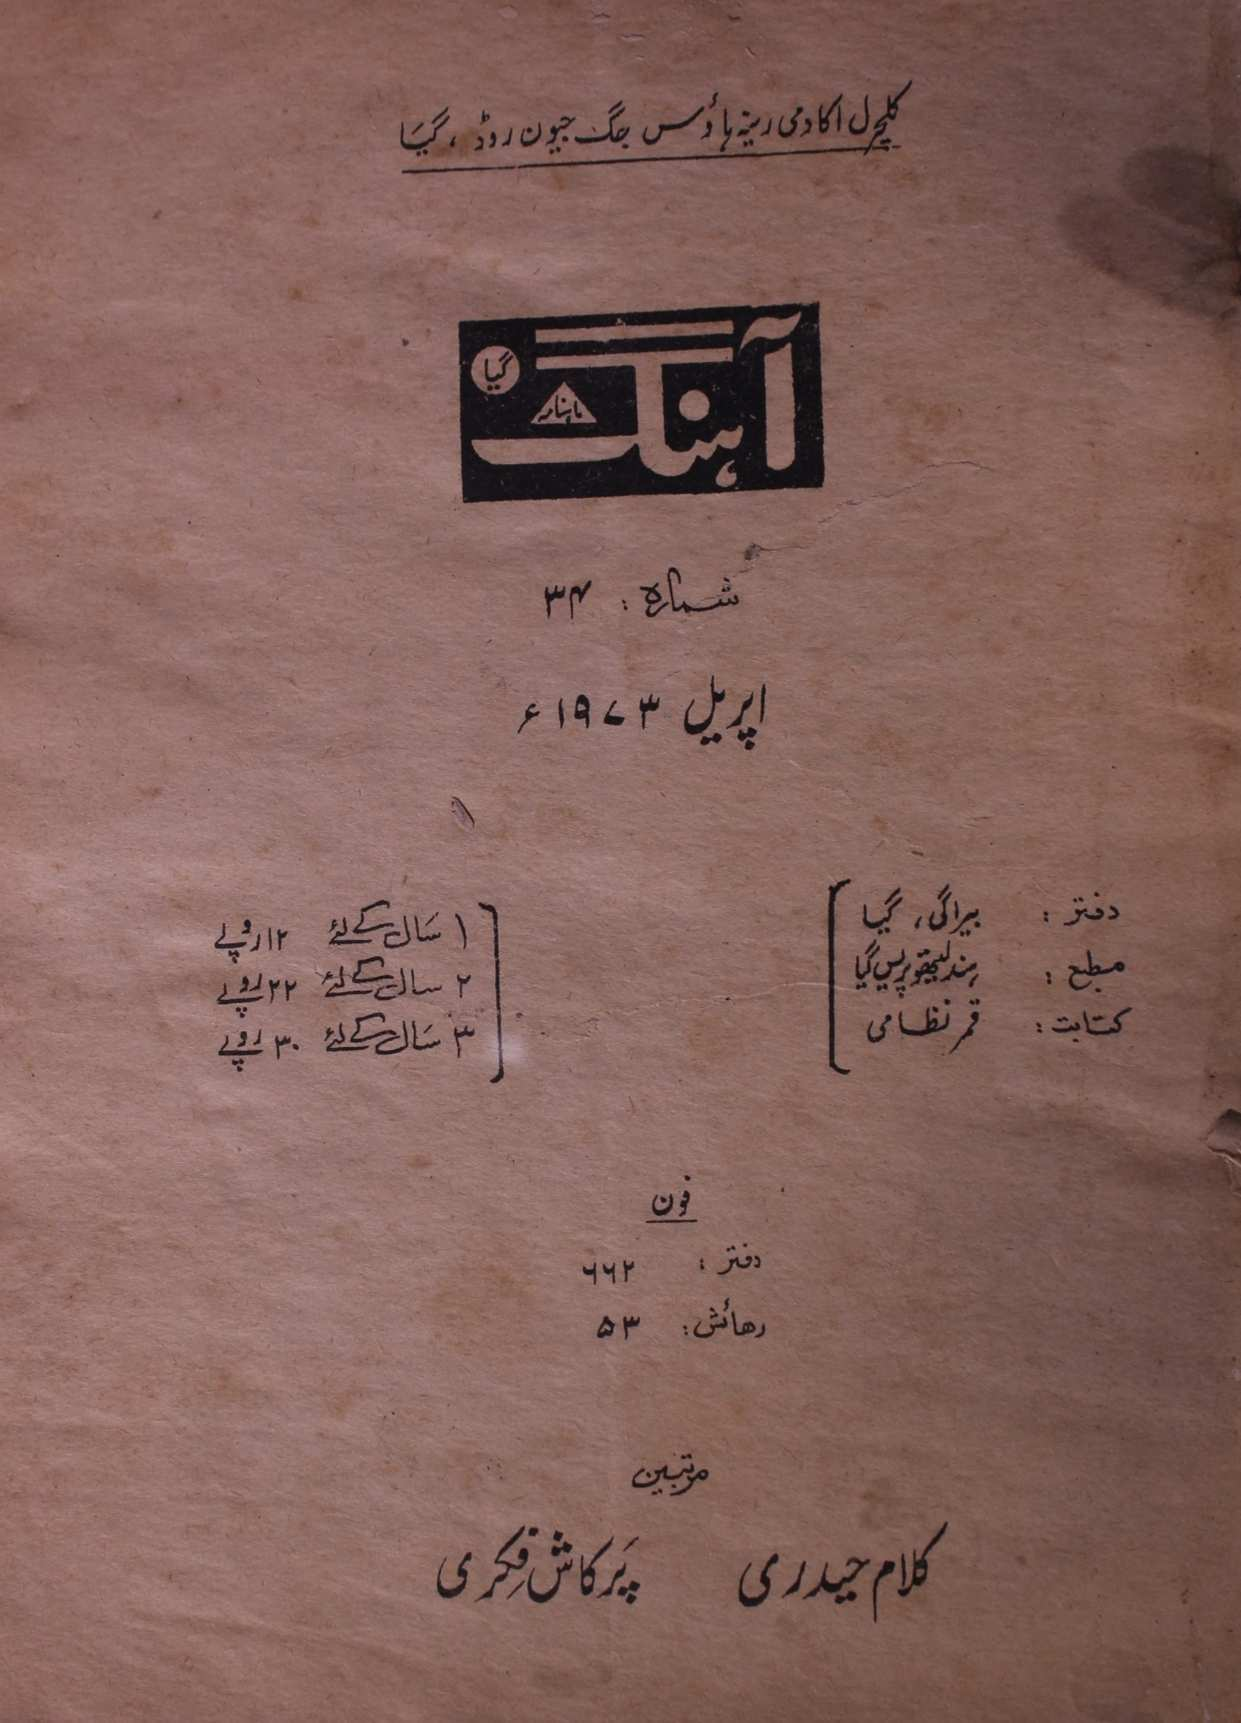 کلچرل اکادمی رینہ ہاؤس جگ جیون روڈ، گیا
آہنگ
ماہنامہ
گیا
شمارہ: ۳۴
اپریل ۱۹۷۳ء
دفتر: بیراگی، گیا
مطبع: ہند لیتھو پریس گیا
کتابت: قمر نظامی
۱ سال کے لئے ۱۲ روپے
۲ سال کے لئے ۲۲ روپے
۳ سال کے لئے ۳۰ روپے
فون
دفتر: ۶۶۲
رہائش: ۵۳
مرتبین
کلام حیدری پرکاش فکری